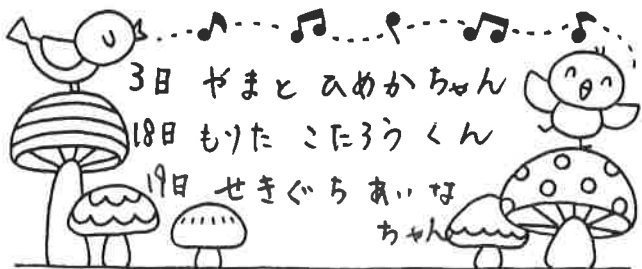 3日 やまと ひめかちゃん
18日 もりた こたろう くん
19日 せきぐち あいな
ちゃん